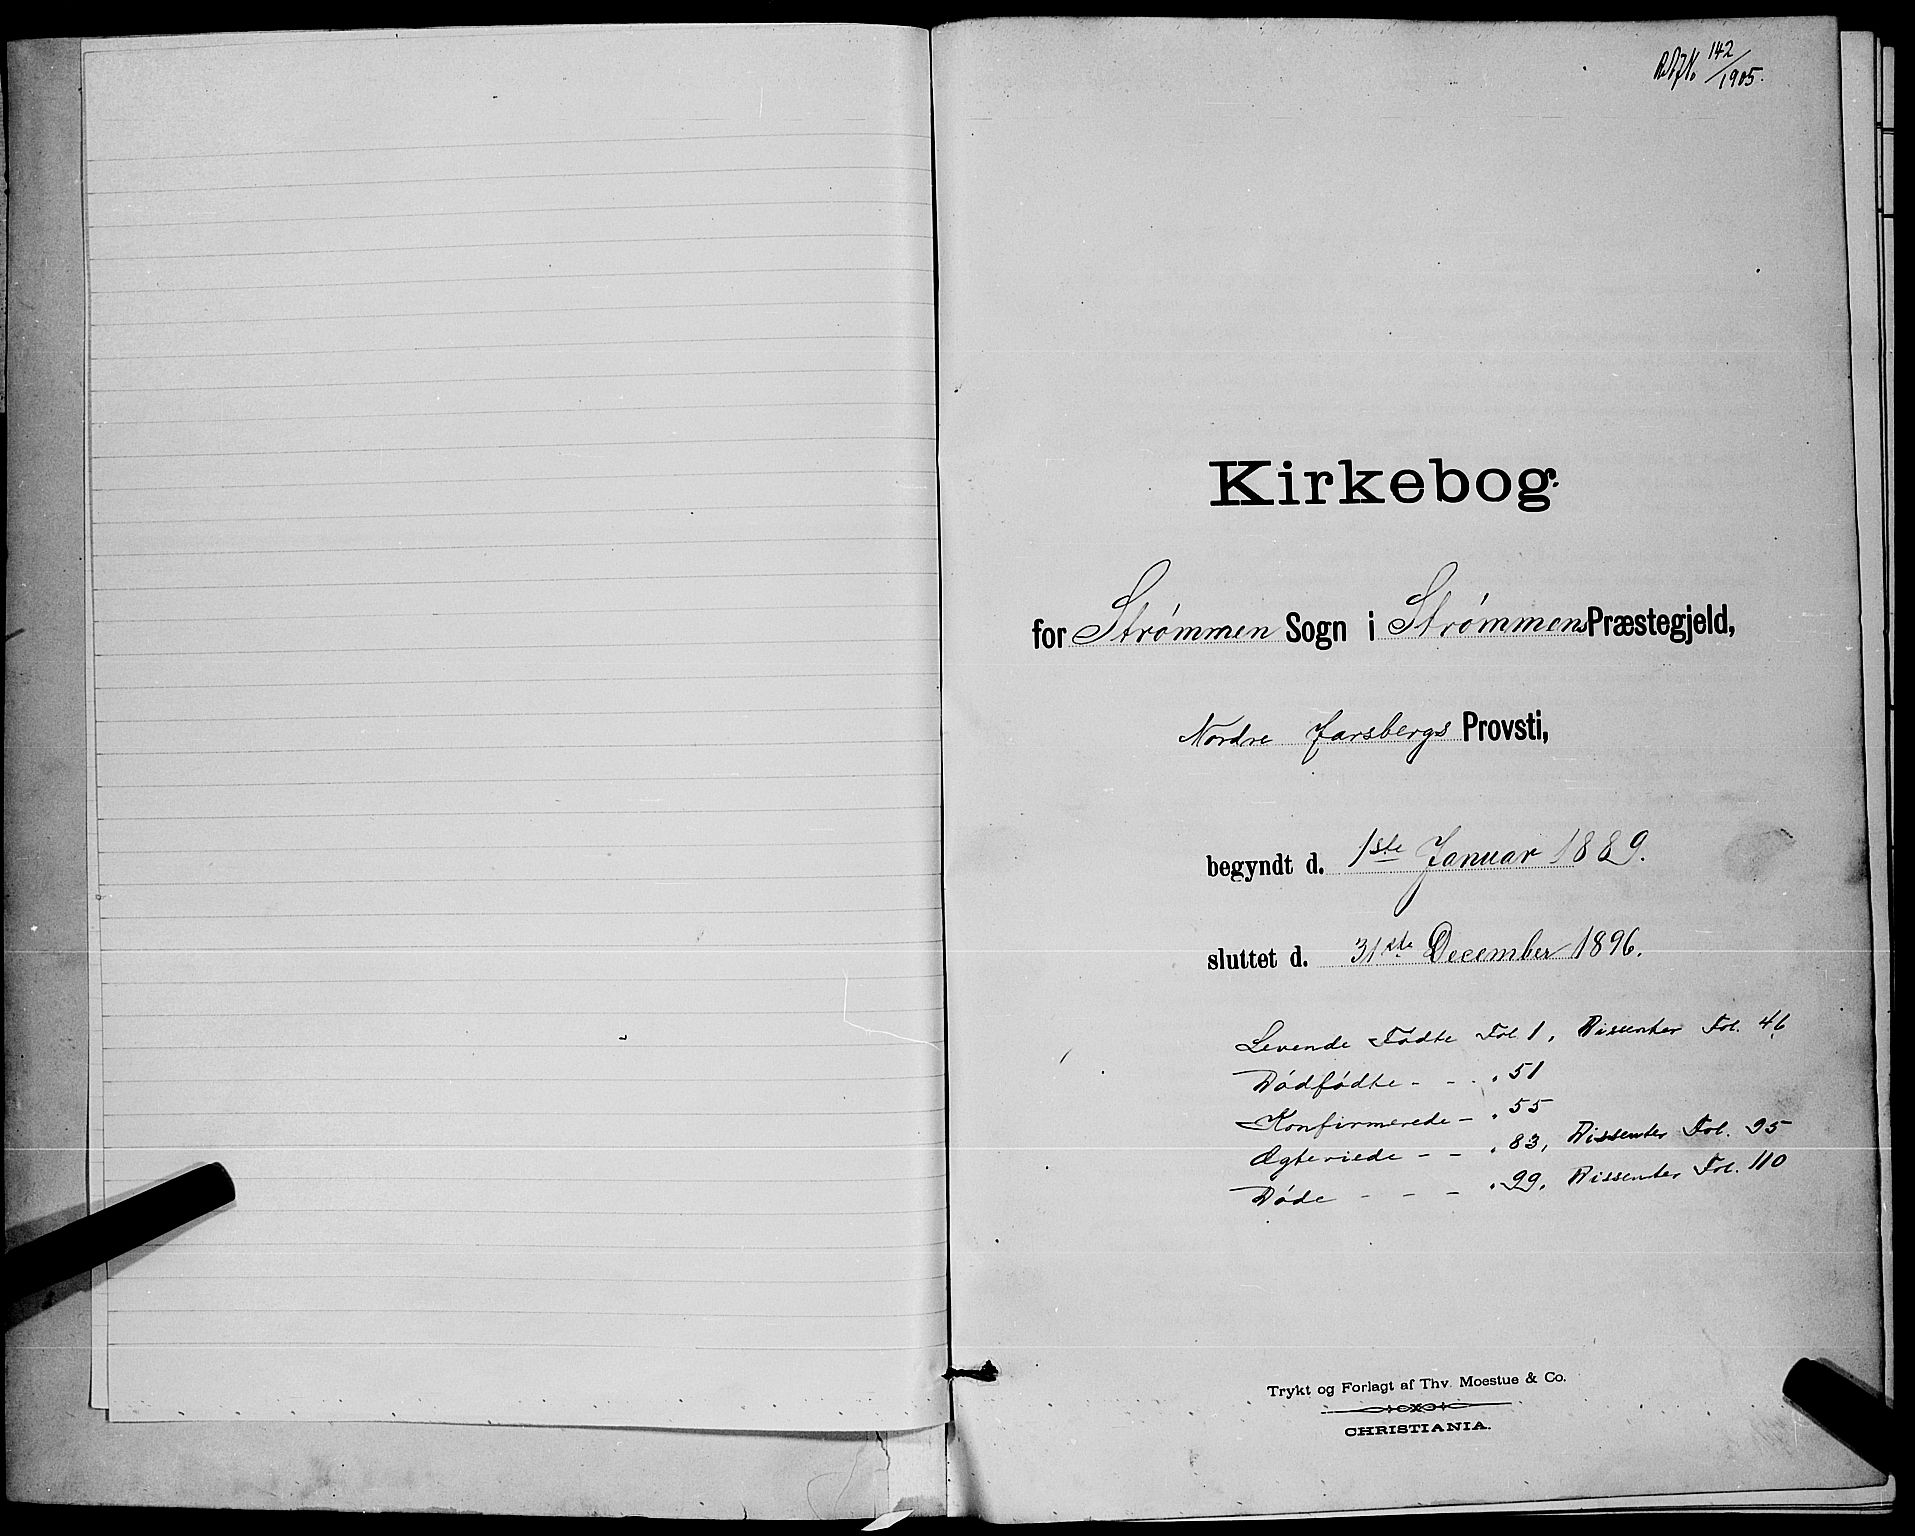 142/1905.
Kirkebog.
for Strømmen Sogn i Strømmens Præstegjeld,
Nordre Jarsbergs Provsti,
begyndt d. 1ste Januar 1889.
sluttet d. 31ste December 1896.
Levende Fødte Fol. 1, Dissenter Fol. 46
Dødfødte - - . „ 51
Konfirmerede - „ 55
Ægteviede - - „ 83, Dissenter Fol. 95
Døde - - - „ 99, Dissenter Fol. 110
Trykt og Forlagt af Thv. Moestue & Co.
CHRISTIANIA.